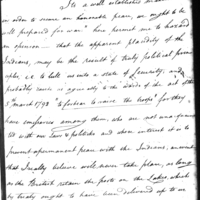 Its a well established maxim
in order to ensure an honorable peace, we ought to be
well prepared for war: here permit me to hazard
an openion — that the apparent placidity of the
Indians, may be the result of truly political
to lull us into a state of security; and
probably advice is agreeably to the words of the act of the
5 march 1792 to forbear to raise the troops for they
have emissaries among them, who are not unacquain
ted with our laws & politicks and whose interest it is to
prevent a permanent peace with the Indians, an event
that I really believe will never take place, as long
as the British retain the posts on the Lakes which
by treaty ought to have been delivered up to us